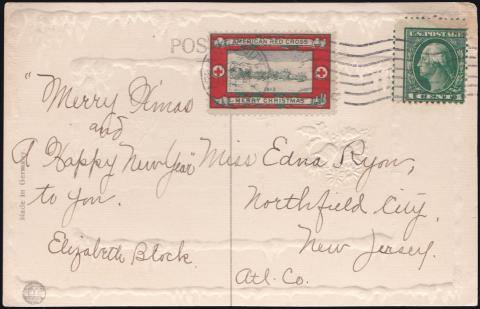 POS
AMERICAN RED CROSS
1913
MERRY CHRISTMAS
U.S. POSTAGE
1 CENT 1
"Merry Xmas
and
A Happy New Year"
to you.
Elizabeth Block.
Miss Edna Ryon,
Northfield City,
New Jersey.
Atl. Co.
Made in Germany